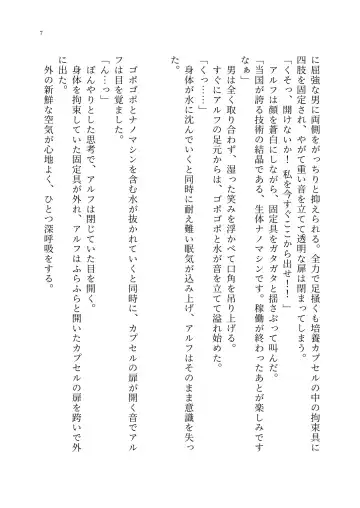 7
に屈強な男に両側をがっちりと抑えられる。全力で足掻くも培養カプセルの中の拘束具に
四肢を固定され、やがて重い音を立てて透明な扉は閉まってしまう。
「くそっ、開けないか！　私を今すぐここから出せ！！」
アルフは顔を蒼白にしながら、固定具をガタガタと揺さぶって叫んだ。
「当国が誇る技術の結晶である、生体ナノマシンです。稼働が終わったあとが楽しみです
なぁ」
男は全く取り合わず、湿った笑みを浮かべて口角を吊り上げる。
すぐにアルフの足元からは、ゴポゴポと水が音を立てて溢れ始めた。
「くっ……」
身体が水に沈んでいくと同時に耐え難い眠気が込み上げ、アルフはそのまま意識を失っ
た。
ゴポゴポとナノマシンを含む水が抜かれていくと同時に、カプセルの扉が開く音でアル
フは目を覚ました。
「ん…っ」
ぼんやりとした思考で、アルフは閉じていた目を開く。
身体を拘束していた固定具が外れ、アルフはふらふらと開いたカプセルの扉を跨いで外
に出た。
外の新鮮な空気が心地よく、ひとつ深呼吸をする。